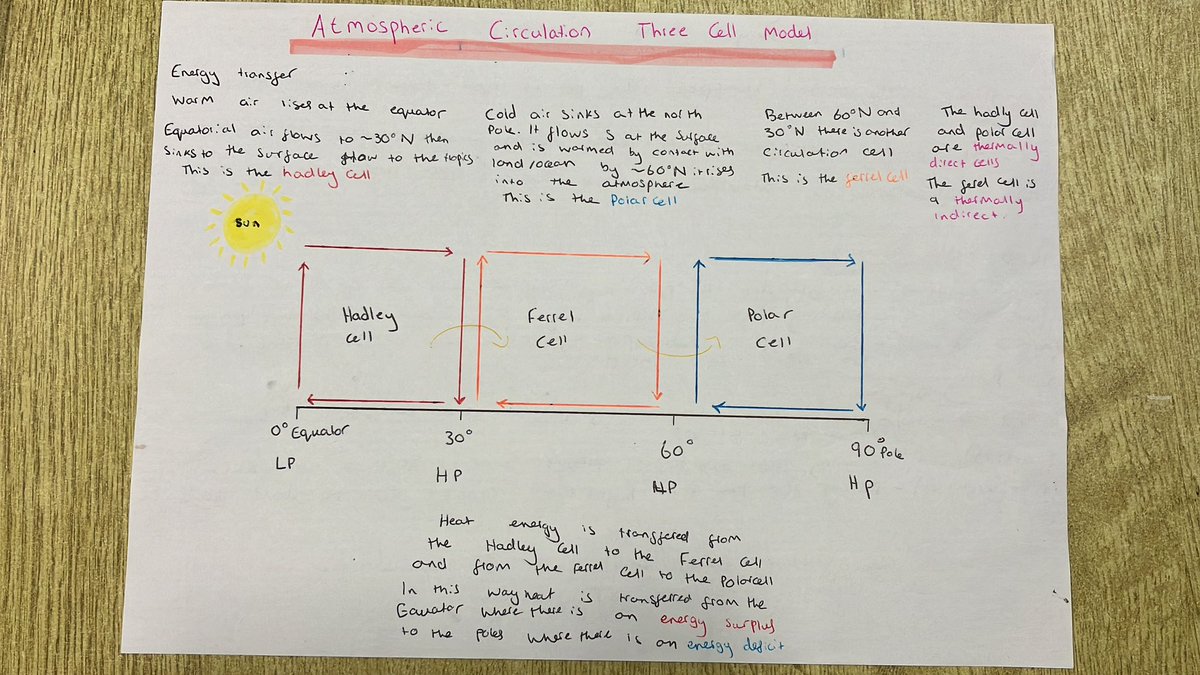 Atmospheric Circulation Three Cell Model
Energy transfer
Warm air rises at the equator
Equatorial air flows to ~30°N then
sinks to the surface flow to the tropics
This is the hadley cell
Cold air sinks at the north
Pole. It flows S at the surface
and is warmed by contact with
land/ocean by ~60°N it rises
into the atmosphere
This is the Polar cell
Between 60°N and
30°N there is another
circulation cell
This is the ferrel cell
The hadly cell
and polar cell
are thermally
direct cells
The ferel cell is
a thermally
indirect.
Sun
Hadley
cell
Ferrel
cell
Polar
cell
0° Equator
30°
60°
90° Pole
LP
HP
HP
Heat energy is transfered from
the Hadley Cell to the Ferrel Cell
and from the ferrel cell to the Polarcell
In this way heat is transferred from the
Equator where there is an energy surplus
to the poles where there is an energy deficit